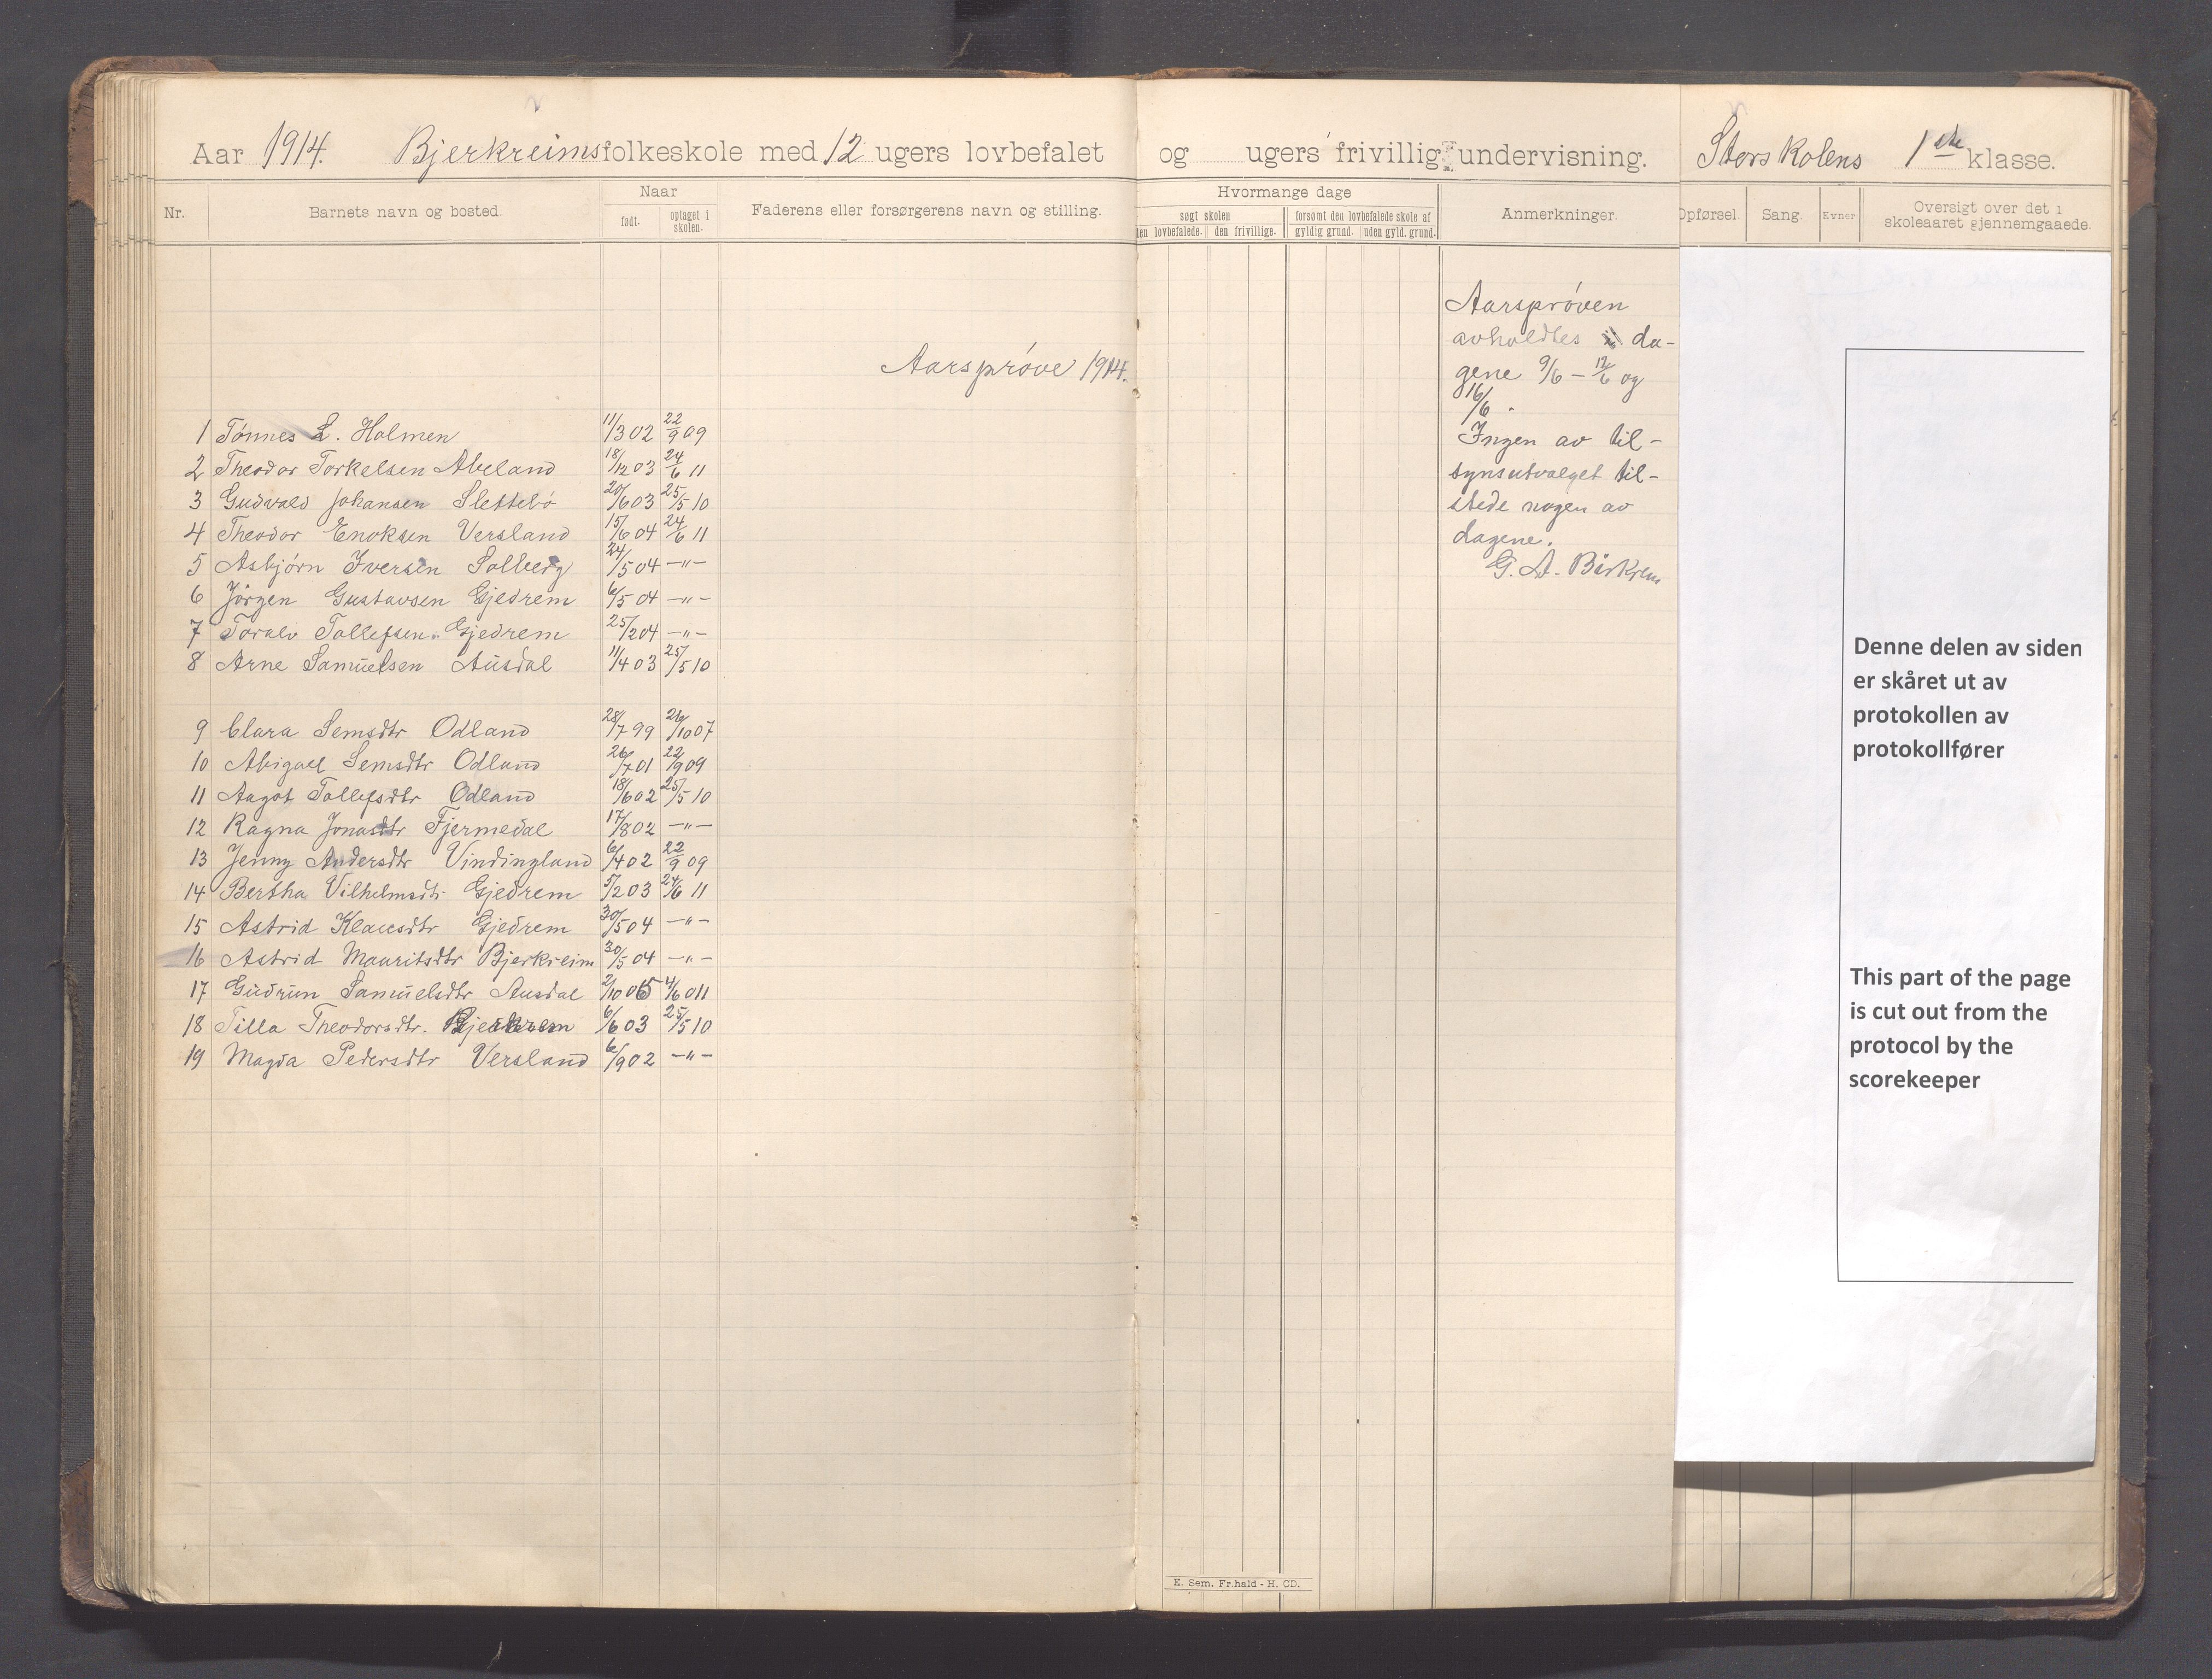 Aar 1914. Bjerkreims folkeskole med 12 ugers lovbefalet og ugers frivillig undervisning. Storskolens 1ste klasse.
Nr. Barnets navn og bosted. Naar født. optaget i skolen. Faderens eller forsørgerens navn og stilling.
Hvormange dage
søgt skolen
den lovbefalede. den frivillige.
forsømt den lovbefalede skole af
gyldig grund. uden gyld. grund.
Anmerkninger.
Opførsel. Sang. Evner
Oversigt over det i
skoleaaret gjennemgaaede.
Aarsprøve 1914.
1 Tønnes L. Holmen 11/3 02 22/9 09
2 Theodor Torkelsen Abeland 18/12 03 24/6 11
3 Gudvald Johansen Slettebø 20/6 03 25/5 10
4 Theodor Enoksen Versland 15/6 04 24/6 11
5 Asbjørn Iversen Solberg 24/5 04 –"–
6 Jørgen Gustavsen Gjedrem 6/5 04 –"–
7 Toralv Tollefsen Gjedrem 25/2 04 –"–
8 Arne Samuelsen Ausdal 11/4 03 25/5 10
9 Clara Semsdtr Odland 28/7 99 /10 07
10 Abigael Semsdtr Odland 26/7 01 22/9 09
11 Aagot Tollefsdtr Odland 18/6 02 25/5 10
12 Ragna Jonasdtr Fjermedal 17/8 02 –"–
13 Jenny Andersdtr Vindingland 6/4 02 22/9 09
14 Bertha Vilhelmsdtr Gjedrem 5/2 03 24/6 11
15 Astrid Klausdtr Gjedrem 30/5 04 –"–
16 Astrid Mauritsdtr Bjerkreim 30/5 04 –"–
17 Gudrun Samuelsdtr Ausdal 2/10 05 4/6 011
18 Tilla Theodorsdtr. 6/6 03 25/5 10
19 Magda Pedersdtr Versland 6/9 02 –"–
Aarsprøven
avholdtes i da-
gene 9/6 – 12/6 og
16/6.
Ingen av til-
synsutvalget til-
stede nogen av
dagene.
G. A. Birkrem
E. Sem. Fr.hald - H. CD.
Denne delen av siden
er skåret ut av
protokollen av
protokollfører
This part of the page
is cut out from the
protocol by the
scorekeeper